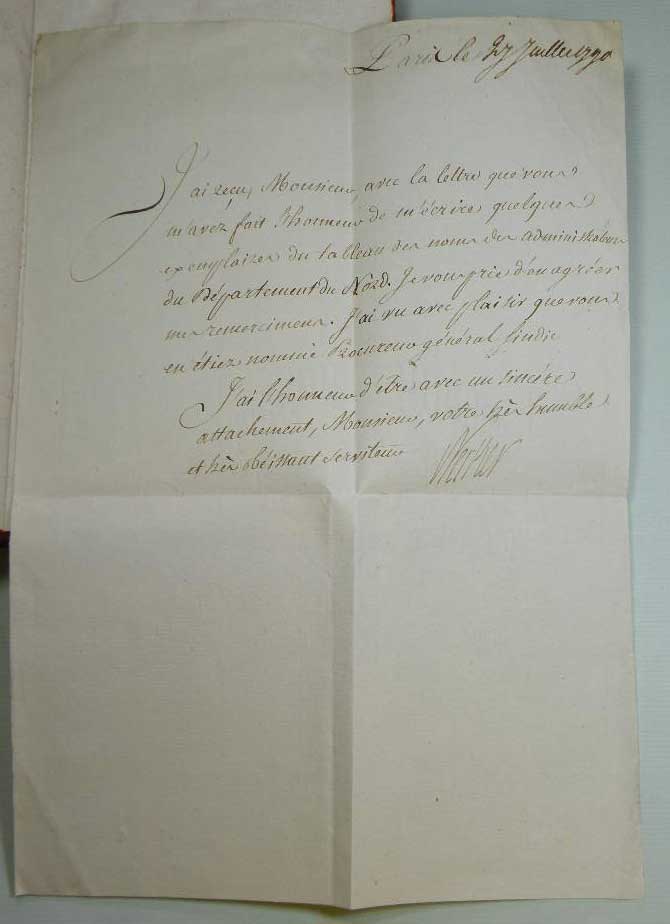 Paris le 27 Juillet 1790
J'ai reçu, Monsieur, avec la lettre que vous
m'avez fait l'honneur de m'écrire, quelques
exemplaires du tableau des noms des administrateurs
du Département du Nord. Je vous prie d'en agréer
mes remercimens. J'ai vu avec plaisir que vous
en étiez nommé Procureur général sindic
J'ai l'honneur d'être avec un sincère
attachement, Monsieur, votre très humble
et très obéissant serviteur
Necker